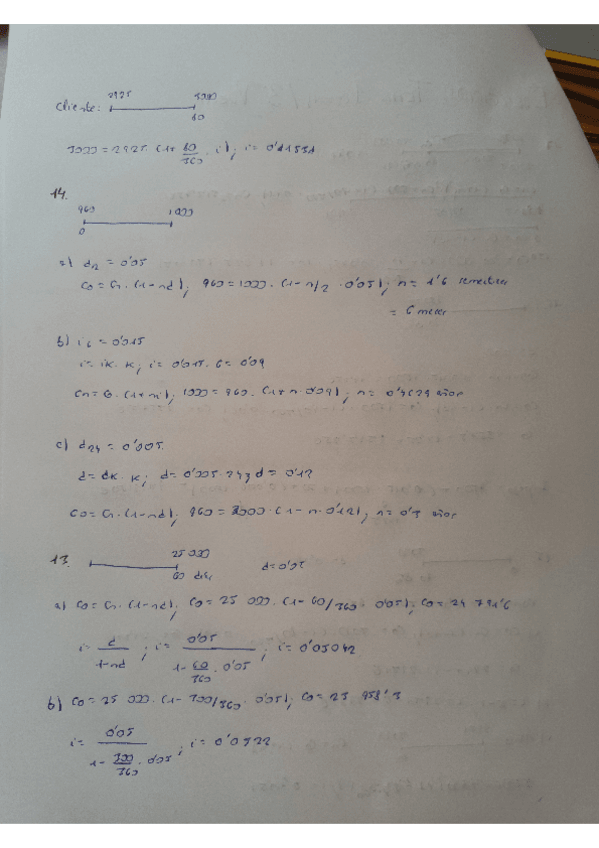 2925 3000
Cliente:
60
3000 = 2925 · (1+ 60/360 · i); i = 0'1538
14.
960 1000
0
a) d2 = 0'05
Co = Cn · (1-nd); 960 = 1000 · (1- n/2 · 0'05); n = 1'6 semestres
= 6 meses
b) i6 = 0'015
i = ik · k; i = 0'015 · 6 = 0'09
Cn = Co · (1+ni); 1000 = 960 · (1+ n · 0'09); n = 0'4629 años
c) d24 = 0'005
d = dk · k; d = 0'005 · 24; d = 0'12
Co = Cn · (1-nd); 960 = 1000 · (1- n · 0'12); n = 0'3 años
13.
25 000
60 días
d = 0'05
a) Co = Cn · (1-nd); Co = 25 000 · (1- 60/360 · 0'05); Co = 24 791'6
i = d / 1-nd ; i = 0'05 / 1- 60/360 · 0'05 ; i = 0'05042
b) Co = 25 000 · (1- 300/360 · 0'05); Co = 23 958'3
i = 0'05 / 1- 300/360 · 0'05 ; i = 0'0522